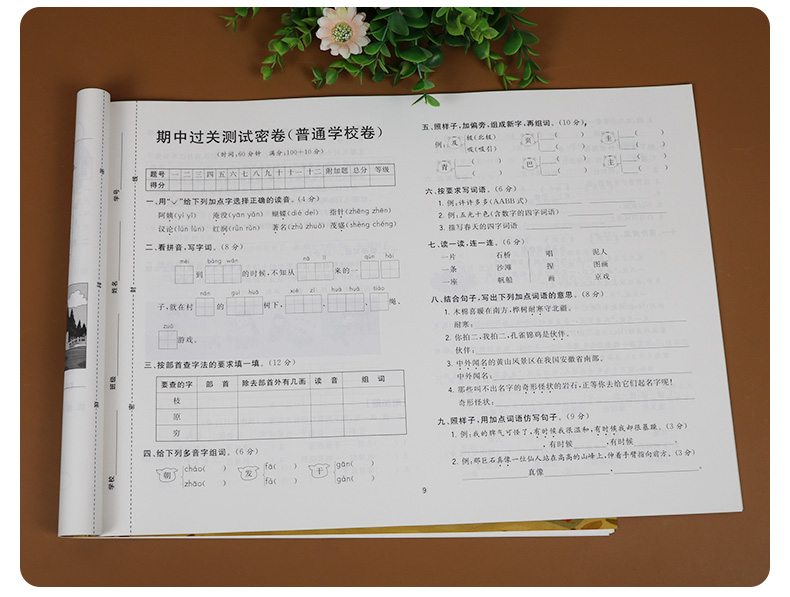 期中过关测试密卷(普通学校卷)
(时间:60分钟 满分:100+10分)
题号 一 二 三 四 五 六 七 八 九 十 十一 十二 附加题 总分 等级
得分
一、用"√"给下列加点字选择正确的读音。(4分)
阿姨(yí yǐ) 淹没(yān yǎn) 蝴蝶(dié del) 指针(zhēng zhēn)
议论(lùn lún) 红润(rùn rùn) 著名(zhù zhuō) 茂盛(shèng chéng)
二、看拼音,写字词。(8分)
měi bàng wǎn nǎ lǐ qún hái
到 的时候,不知从 来的一
nán guì huā xiē zǐ huā huā tiào
子,就在村 的 树下, 、 、 绳、
zuò
游戏。
三、按部首查字法的要求填一填。(12分)
要查的字 部首 除去部首外有几画 读音 组词
枝
原
穷
四、给下列多音字组词。(6分)
朝 cháo( ) zhāo( ) 发 fā( ) fà( ) 干 gān( ) gàn( )
学校
班级
姓名
学号
密
封
线
五、照样子,加偏旁,组成新字,再组词。(10分)
例:及 极(北极) 吸(吸引)
青 巴 主
六、按要求写词语。(6分)
1. 例:许许多多(AABB式)
2. 例:五光十色(含数字的四字词语)
3. 描写春天的四字词语
七、读一读,连一连。(6分)
一片 石桥 唱 泥人
一条 沙滩 捏 图画
一座 帆船 画 京戏
八、结合句子,写出下列加点词语的意思。(8分)
1. 木棉喜暖在南方,桦树耐寒守北疆。
耐寒:
2. 你拍二,我拍二,孔雀锦鸡是伙伴。
伙伴:
3. 中外闻名的黄山风景区在我国安徽省南部。
中外闻名:
4. 那些叫不出名字的奇形怪状的岩石,正等你去给它们起名字呢!
奇形怪状:
九、照样子,用加点词语仿写句子。(9分)
1. 例:我的脾气可怪了,有时候我很温和,有时候我却很暴躁。(3分)
,有时候 ,有时候 。
2. 例:那巨石真像一位仙人站在高高的山峰上,伸着手臂指向前方。(3分)
真像 , 。
9